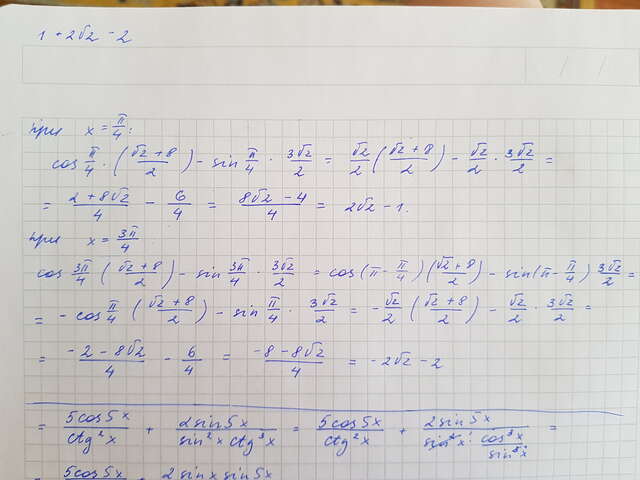 1 + 2√2 - 2
при x = π/4 :
cos π/4 · ( (√2 + 8)/2 ) - sin π/4 · 3√2/2 = √2/2 ( (√2 + 8)/2 ) - √2/2 · 3√2/2 =
= (2 + 8√2)/4 - 6/4 = (8√2 - 4)/4 = 2√2 - 1.
при x = 3π/4
cos 3π/4 ( (√2 + 8)/2 ) - sin 3π/4 · 3√2/2 = cos(π - π/4) ( (√2 + 8)/2 ) - sin(π - π/4) 3√2/2 =
= - cos π/4 ( (√2 + 8)/2 ) - sin π/4 · 3√2/2 = - √2/2 ( (√2 + 8)/2 ) - √2/2 · 3√2/2 =
= (-2 - 8√2)/4 - 6/4 = (-8 - 8√2)/4 = -2√2 - 2
= 5cos5x/ctg²x + 2sin5x/(sin²x ctg³x) = 5cos5x/ctg²x + 2sin5x/(sin²x · cos³x/sin³x) =
= 5cos5x + 2sinx sin5x